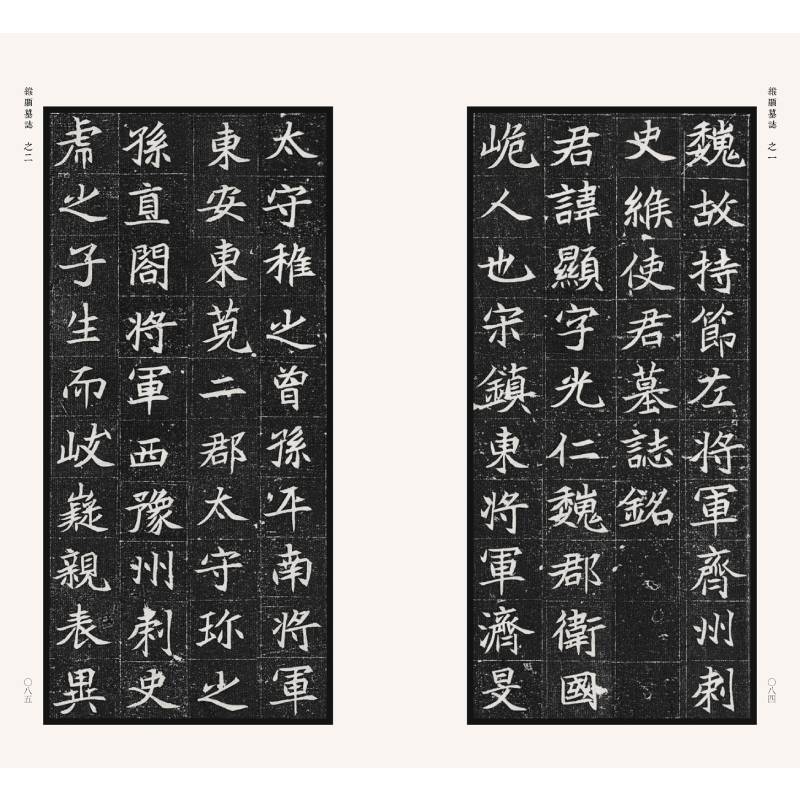 緱顯墓誌 之一
魏故持節左將軍齊州刺
史緱使君墓誌銘
君諱顯字光仁魏郡衛國
峗人也宋鎮東將軍濟旻
〇八四
太守稚之曾孫平南將軍
東安東莞二郡太守珎之
孫直閤將軍西豫州刺史
虎之子生而岐嶷親表異
緱顯墓誌 之二
〇八五